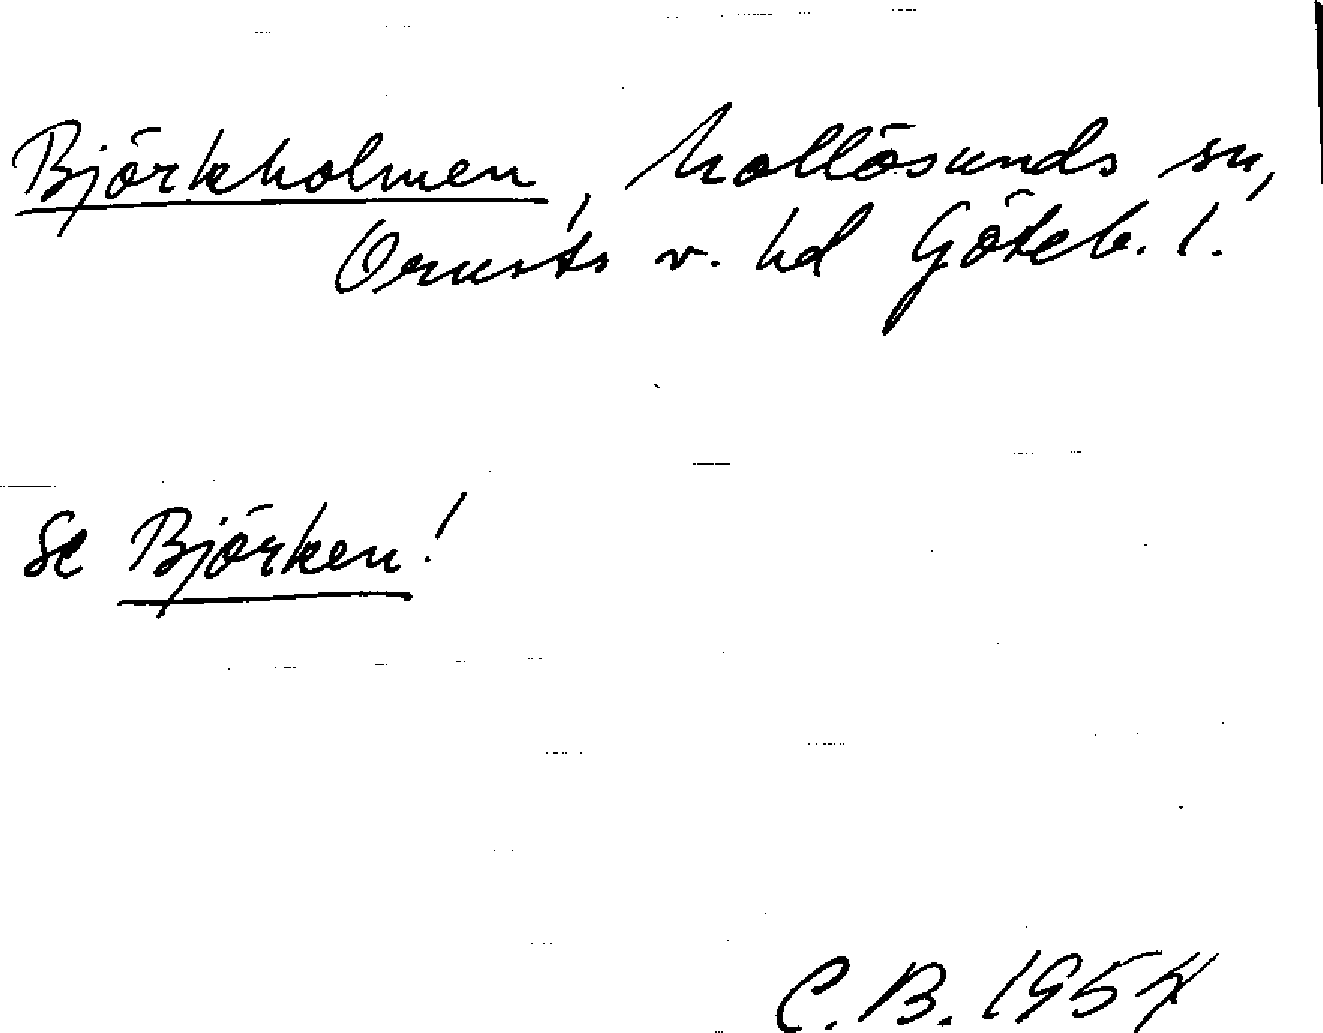 Björkholmen, Mollösunds sn,
Orusts v. hd Göteb. l.
Se Björken!
C.B. 1954